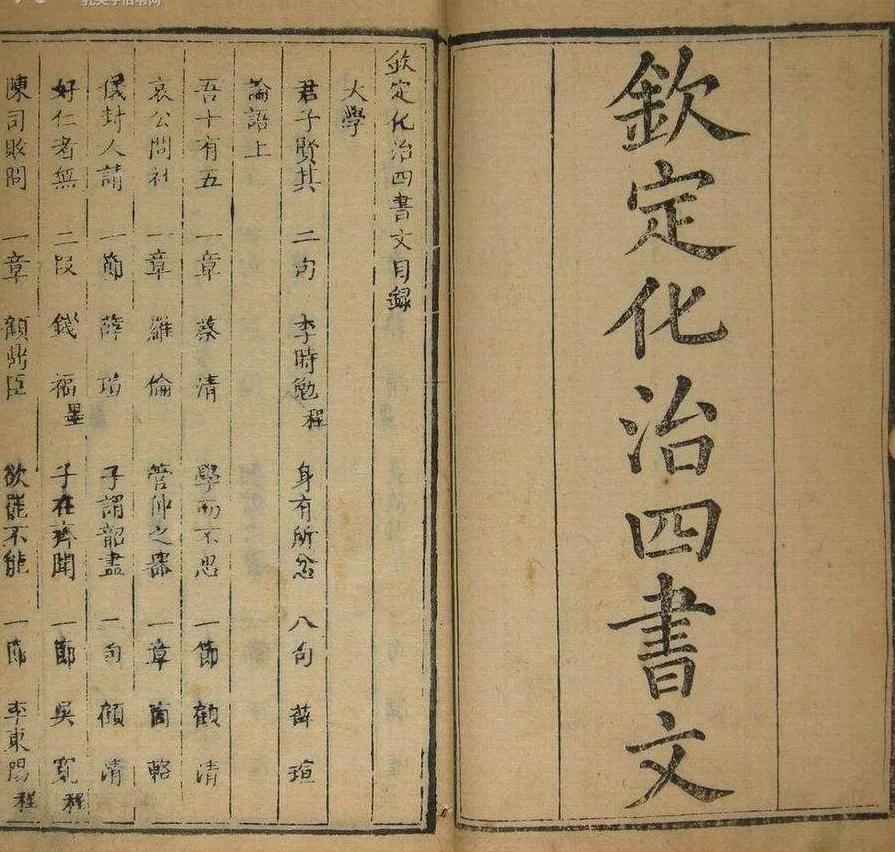 欽定化治四書文
欽定化治四書文目録
大學
君子賢其 二句 李時勉 程 身有所忿 八句 薛瑄
論語上
吾十有五 一章 蔡清 學而不思 一節 顧清
哀公問社 一章 羅倫 管仲之器 一章 商輅
儀封人請 一節 薛瑄 子謂韶盡 一句 顧清
好仁者無 二段 錢福 墨 子在齊聞 一節 吳寬 程
陳司敗問 一章 顧鼎臣 欲罷不能 一節 李東陽 程